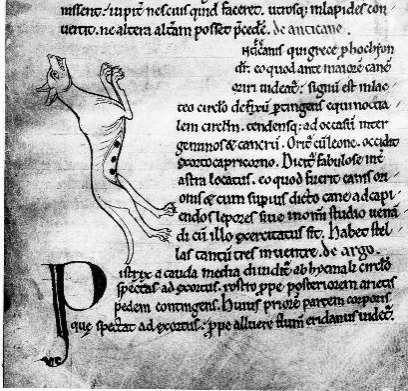 missent. iupit nesciuſ quid faceret. utroſq; in lapideſ con
uertit. ne altera altam poſſet pcede. de anticane.
anticaniſ qui grece phochion
dr. eo quod ante maiore cane
oriri uideat. ſignu eſt in lac
teo circlo defixu ptingenſ equinoctia
lem circlm. tendenſq; ad occaſu inter
geminoſ & cancru. Orit cu leone. occidit
exorto capricorno. Dicit fabuloſe int
aſtra locatuſ. eo quod fuerit caniſ ori
oniſ & cum ſupiuſ dicto cane ad capi
endoſ leporeſ ſiue in omi ſtudio uena
di cu illo exercitatuſ ſit. Habet ſtel
laſ tantu treſ in uentre. de argo.
Piſtrix a cauda media diuidit ab hyemali circlo
ſpectaſ ad exortuſ. roſtro ppe poſteriorem arietiſ
pedem contingenſ. Huiuſ priore partem corporiſ
que ſpectat ad exortuſ. ppe alluere flum eridanuſ uidet.